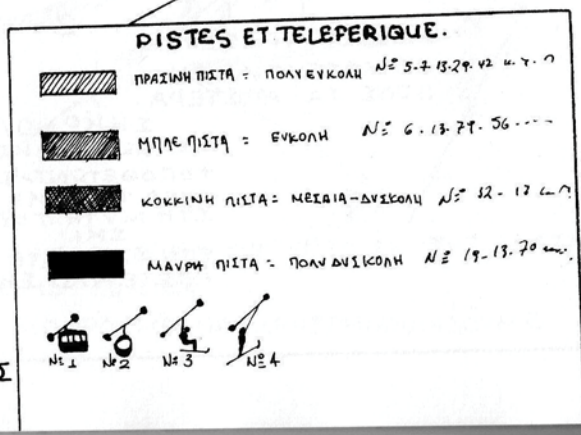 PISTES ET TELEPERIQUE.
ΠΡΑΣΙΝΗ ΠΙΣΤΑ = ΠΟΛΥ ΕΥΚΟΛΗ Nº 5-7-13-29-42 κ.τ.λ
ΜΠΛΕ ΠΙΣΤΑ = ΕΥΚΟΛΗ Nº 6.13-79.56----
ΚΟΚΚΙΝΗ ΠΙΣΤΑ = ΜΕΣΑΙΑ-ΔΥΣΚΟΛΗ Nº 32-13
ΜΑΥΡΗ ΠΙΣΤΑ = ΠΟΛΥ ΔΥΣΚΟΛΗ Nº 19-13.70
Nº 1 Nº 2 Nº 3 Nº 4